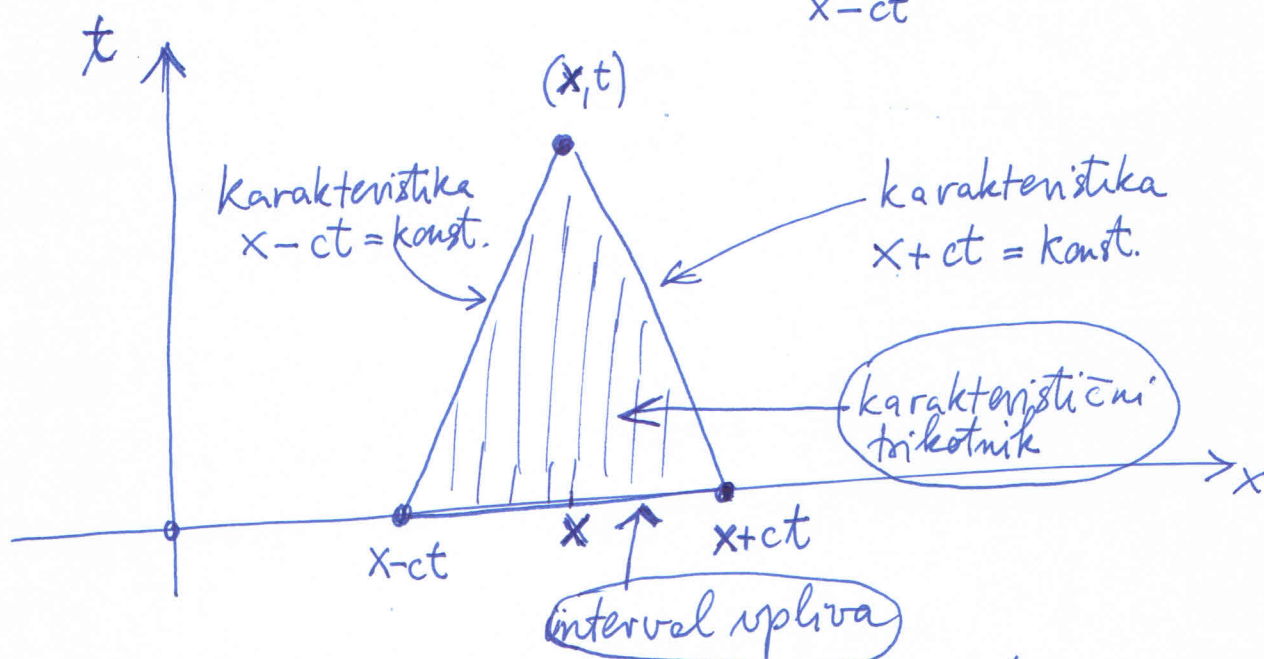 x-ct
t
(x,t)
karakteristika
x-ct = konst.
karakteristika
x+ct = konst.
karakteristični
trikotnik
x
x-ct
x
x+ct
interval vpliva